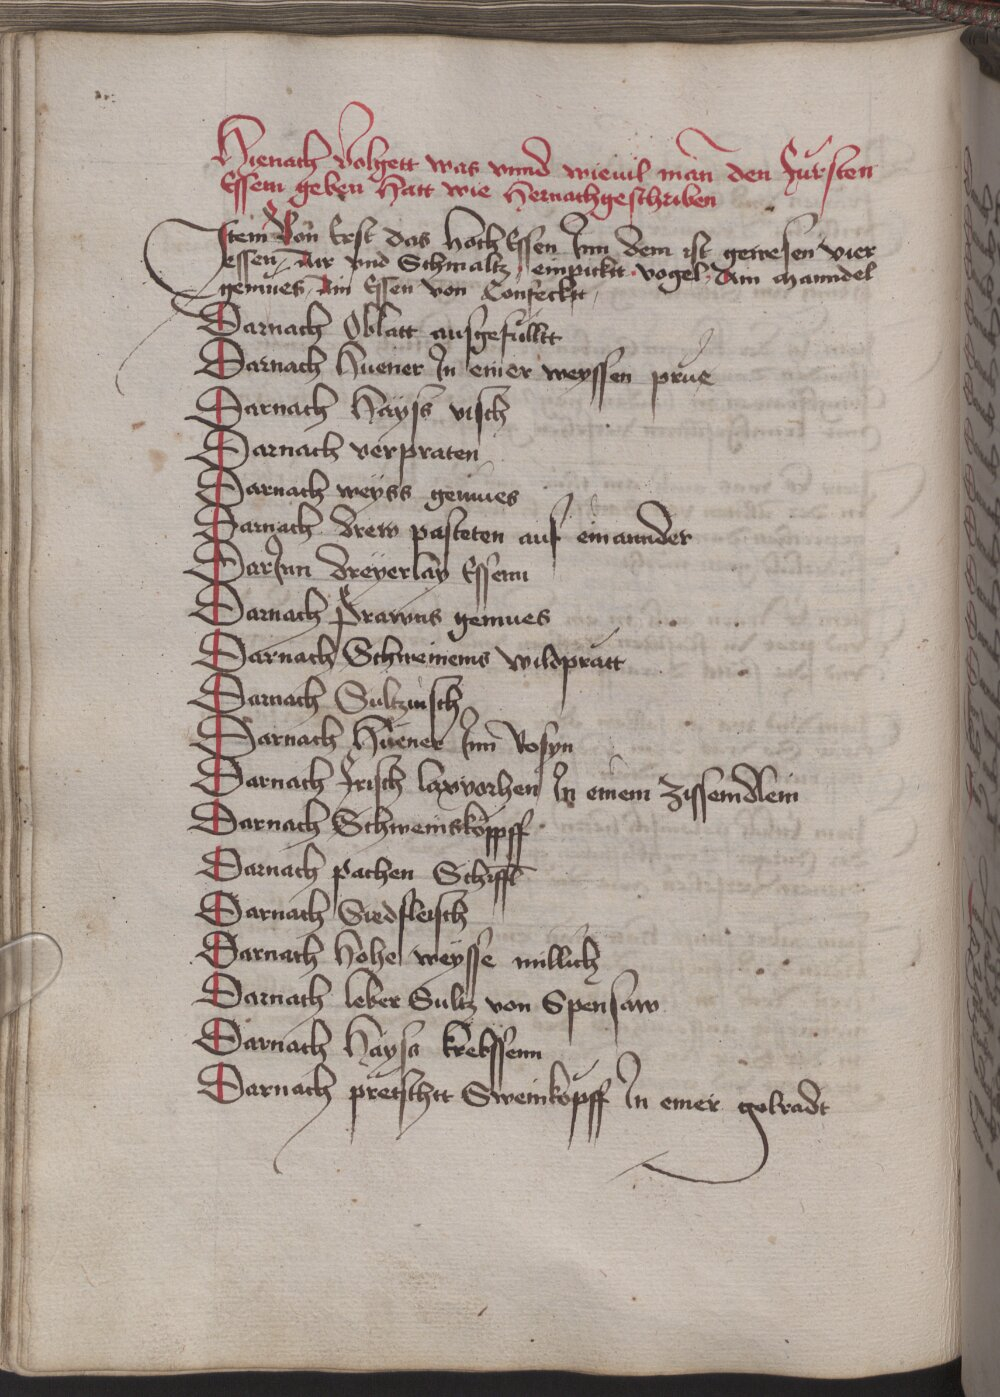 Hienach Volgett was vnnd wieuil man den Fürsten
Essem geben Hatt wie Hernachgeschriben
Item Von Erst das hoch Essen Inn dem ist gewesen vier
essen, Air vnd Schmaltz, einpickt vogel, Ain manndel
gemues, Ain Essen von Confeckt,
Darnach Oblatt ausgefüllt
Darnach Huener In einer weyssen prüe
Darnach Hayss visch
Darnach verpraten
Darnach weyss gemues
Darnach drew pasteten auf einannder
DarInn dreyerlay Essenn
Darnach Prawns gemues
Darnach Schweinens wildprätt
Darnach Sultzuisch
Darnach Hüener Inn Rosyn
Darnach Frisch laxvorhen In einem Zissemdlein
Darnach Schweinsköppff
Darnach pachen Schiffl
Darnach Siedfleisch
Darnach Hohe weysse millich
Darnach leber Sultz von Spensaw
Darnach Hayss krebssenn
Darnach Sweinköpff In einer